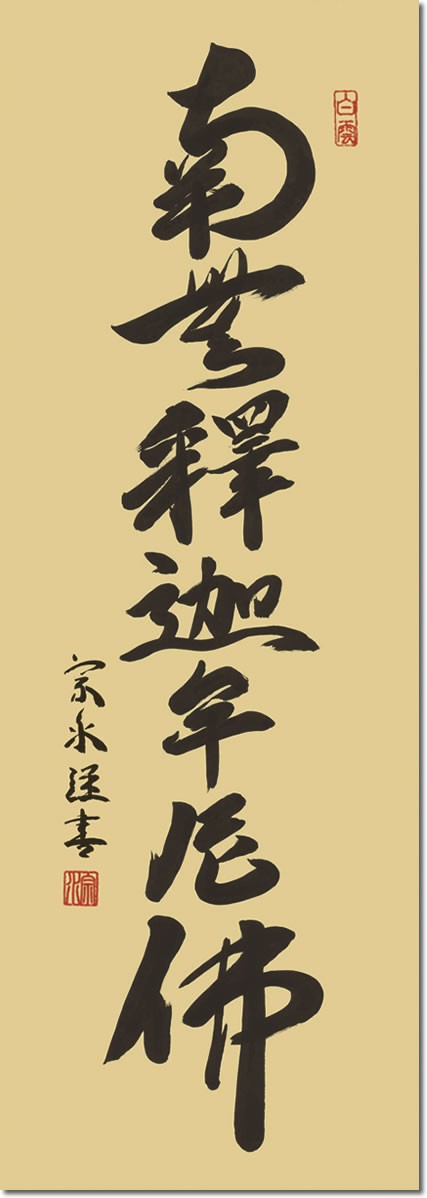 南無釋迦牟尼佛
白雲
宗永謹書